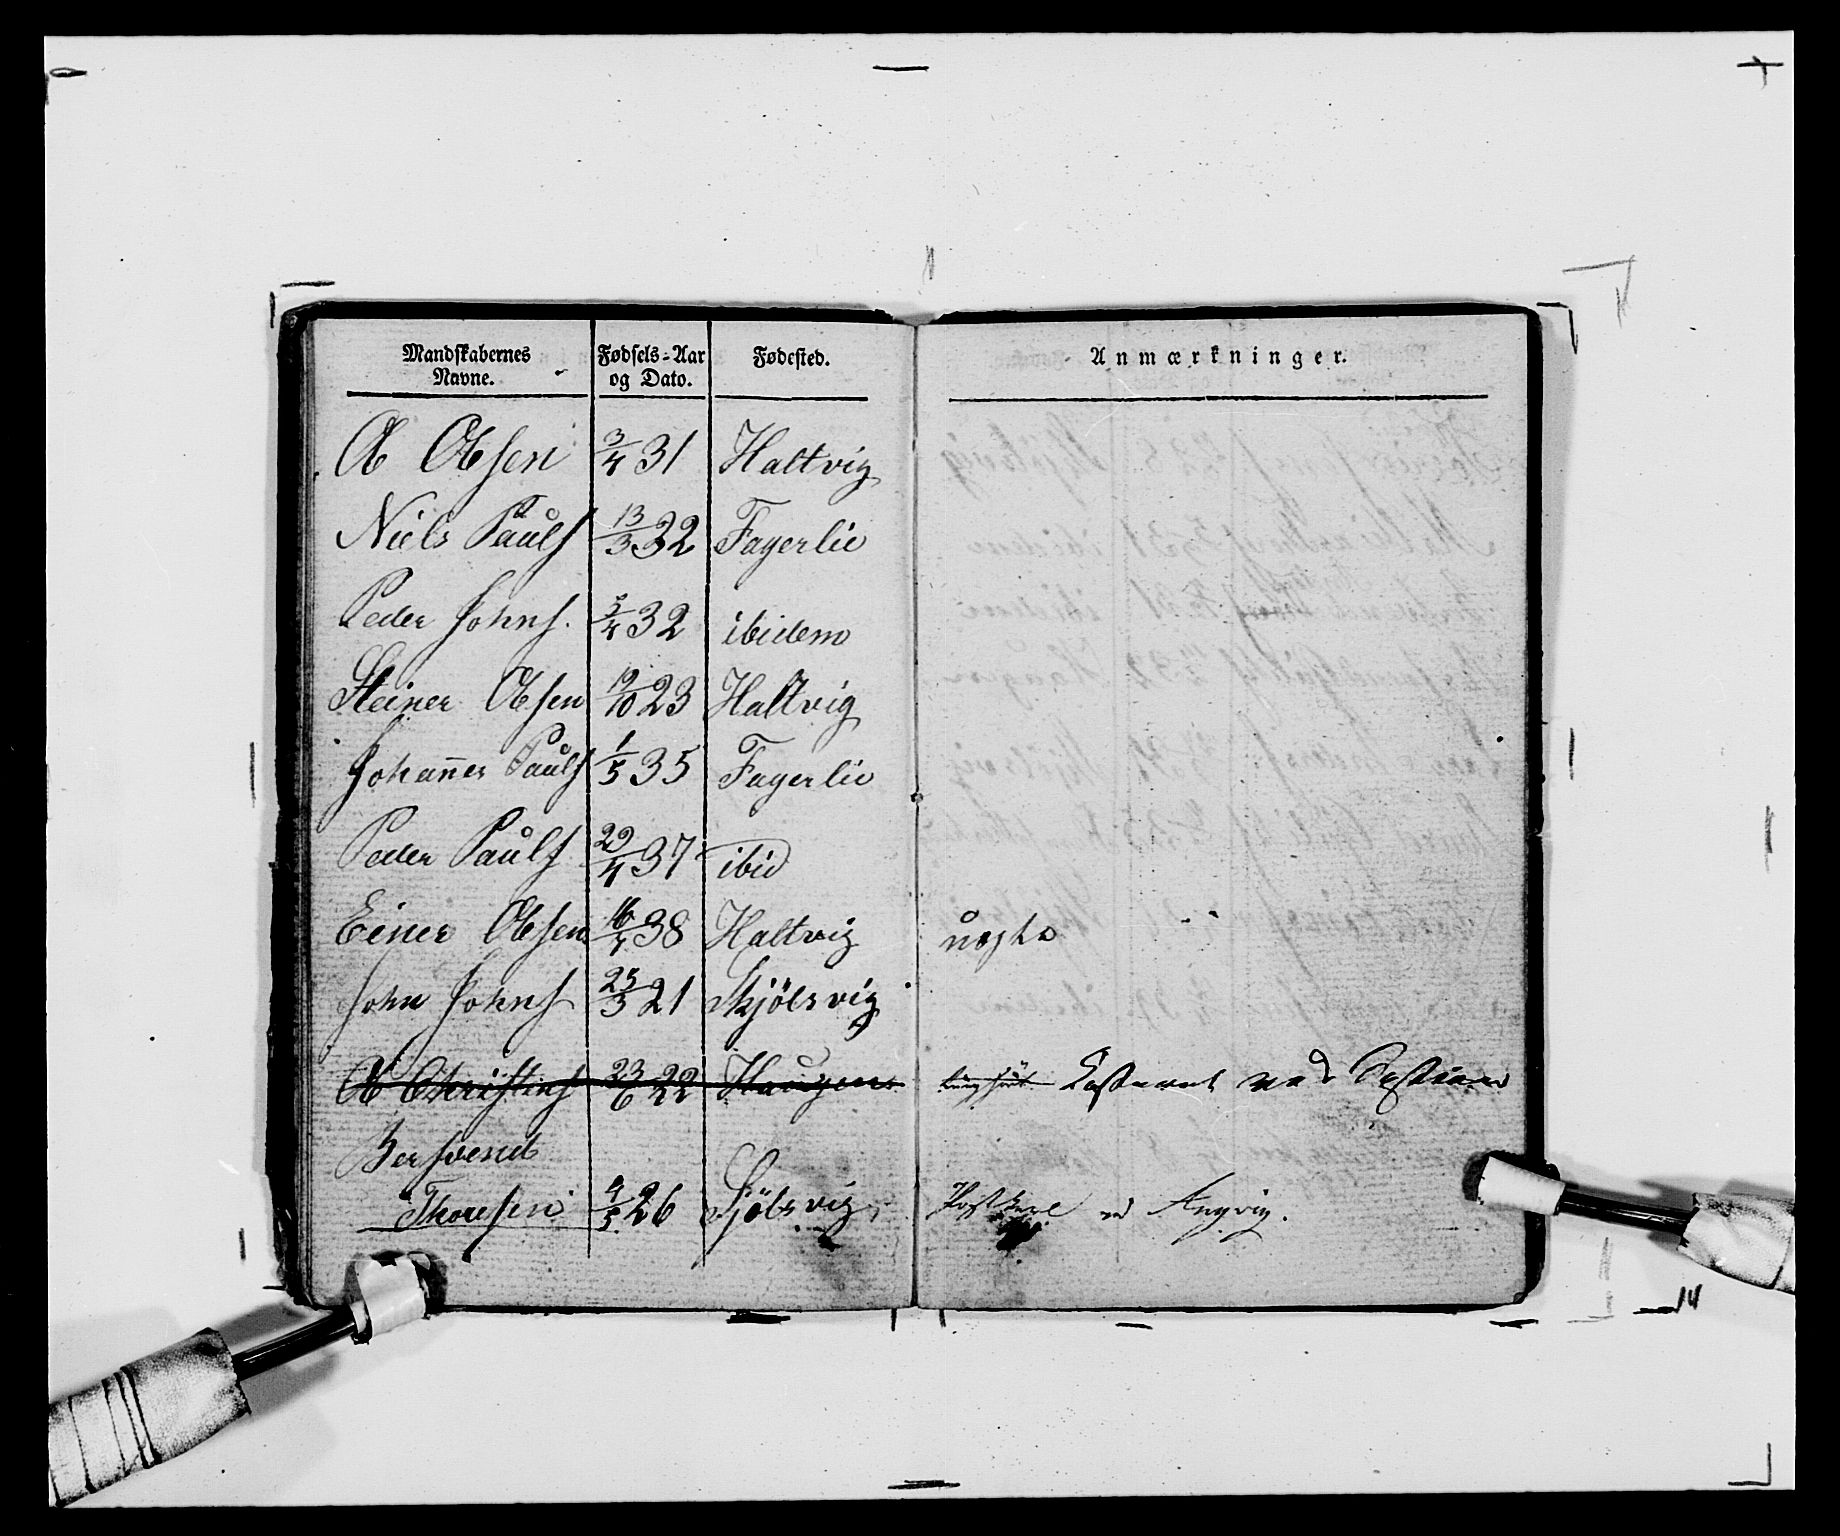 Mandskabernes Navne. Fødsels-Aar og Dato. Fødested. Anmærkninger.
Ol Olsen 3/4 31 Haltvig
Niels Pauls 13/3 32 Fagerlie
Peder Johns. 5/4 32 ibidem
Steiner Olsen 19/10 23 Haltvig
Johannes Pauls 1/5 35 Fagerlie
Peder Pauls 29/4 37 ibid
Einer Olsen 16/4 38 Haltvig
John Johns 25/3 21 Skjölsvig
Ol Christens 23/6 22 Haugen
Bersvend
Thoresen 4/5 26 Sjölsvig Postkarl Angvig.
14